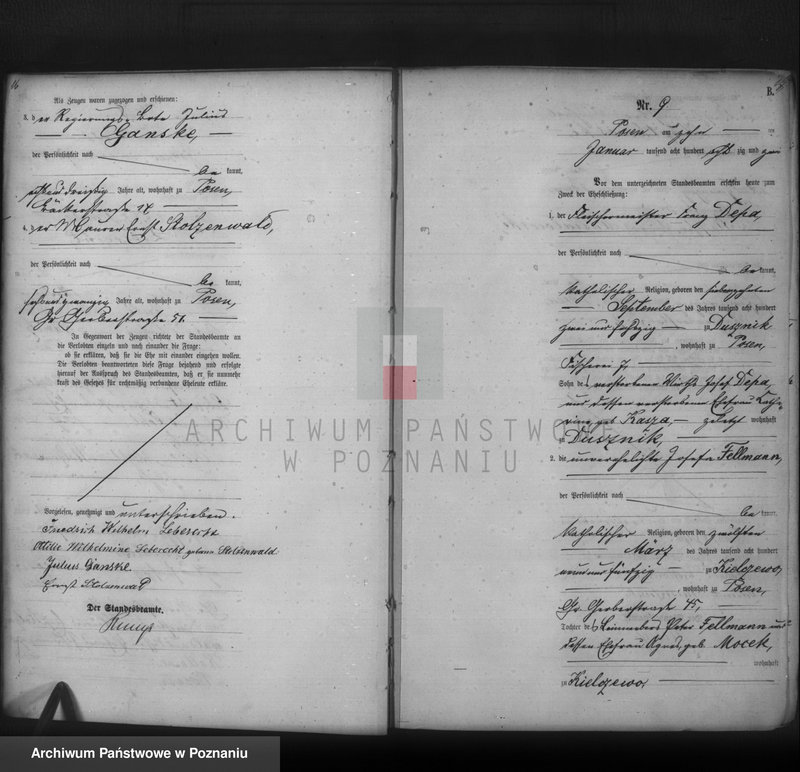 16
Als Zeugen waren zugezogen und erschienen:
3. der Regierungs-Bote Julius
Ganske,
der Persönlichkeit nach
be kannt,
Jahre alt, wohnhaft zu Posen,
4. der Maurer Ernst Stolzenwald,
der Persönlichkeit nach
be kannt,
Jahre alt, wohnhaft zu Posen,
Gr. Gerberstraße 51.
In Gegenwart der Zeugen richtete der Standesbeamte an
die Verlobten einzeln und nach einander die Frage:
ob sie erklären, daß sie die Ehe mit einander eingehen wollen.
Die Verlobten beantworteten diese Frage bejahend und erfolgte
hierauf der Ausspruch des Standesbeamten, daß er sie nunmehr
kraft des Gesetzes für rechtmäßig verbundene Eheleute erkläre.
Vorgelesen, genehmigt und unterschrieben.
Friedrich Wilhelm Leberecht
Wilhelmine Leberecht geborne Stolzenwald
Julius Ganske.
Ernst Stolzenwald
Der Standesbeamte.
B.
Nr. 9
Posen am zehn ten
Januar tausend acht hundert acht zig und zwei
Vor dem unterzeichneten Standesbeamten erschienen heute zum
Zweck der Eheschließung:
1. der Fleischermeister Franz Depa,
der Persönlichkeit nach
be kannt,
katholischer Religion, geboren den siebenzehnten
September des Jahres tausend acht hundert
zwei und fünfzig zu Dusznik
, wohnhaft zu Posen,
Fischerei 7,
Sohn des verstorbenen Wirths Josef Depa,
und dessen verstorbenen Ehefrau Katha-
rina geb. Kasza, zuletzt wohnhaft
zu Dusznik,
2. die unverehelichte Josefa Fellmann,
der Persönlichkeit nach
be kannt,
katholischer Religion, geboren den zwölften
März des Jahres tausend acht hundert
neun und fünfzig zu Kielczewo,
, wohnhaft zu Posen,
Gr. Gerberstraße 45,
Tochter des Peter Fellmann und
dessen Ehefrau Agnes, geb. Mocek,
wohnhaft
zu Kielczewo,
ARCHIWUM PAŃSTWO
W POZNANIU
Archiwum Państwowe w Poznaniu